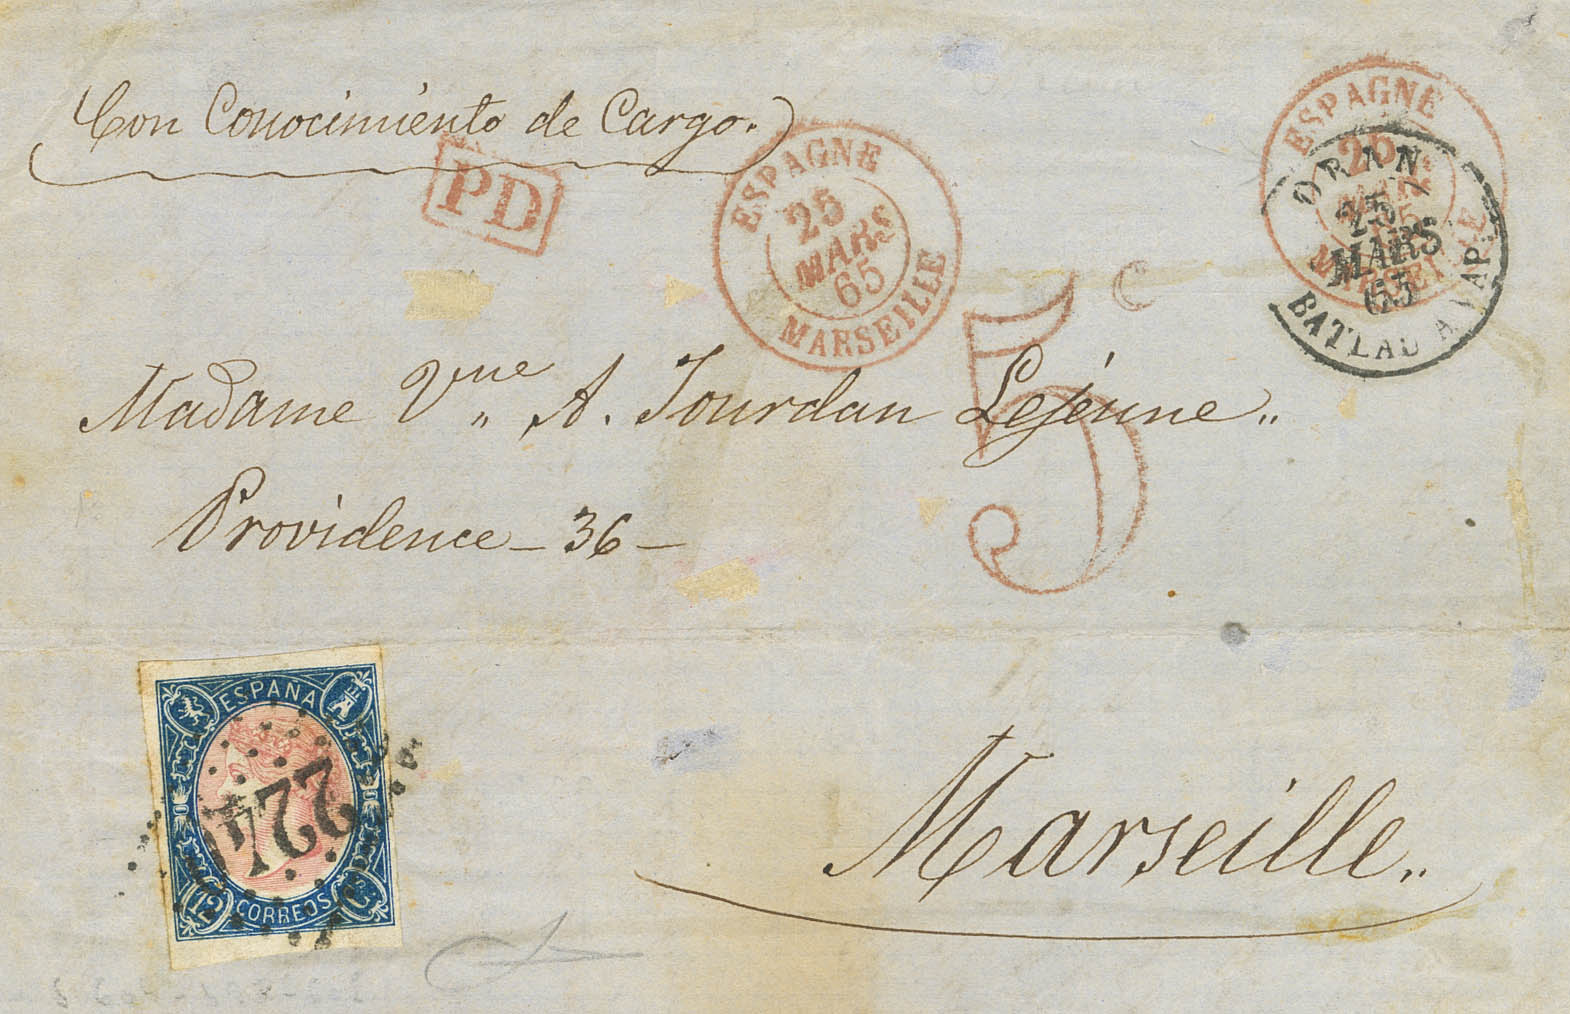 Con Conocimiento de Cargo.
PD
ESPAGNE
25
MARS
65
MARSEILLE
ESPAGNE
25
MARS
65
MARSEILLE
ORAN
25
MARS
65
BATEAU A VAP.
5 c
Madame Vve A. Jourdan Lejeune
Providence - 36 -
Marseille
ESPAÑA
224
12 Cs
CORREOS